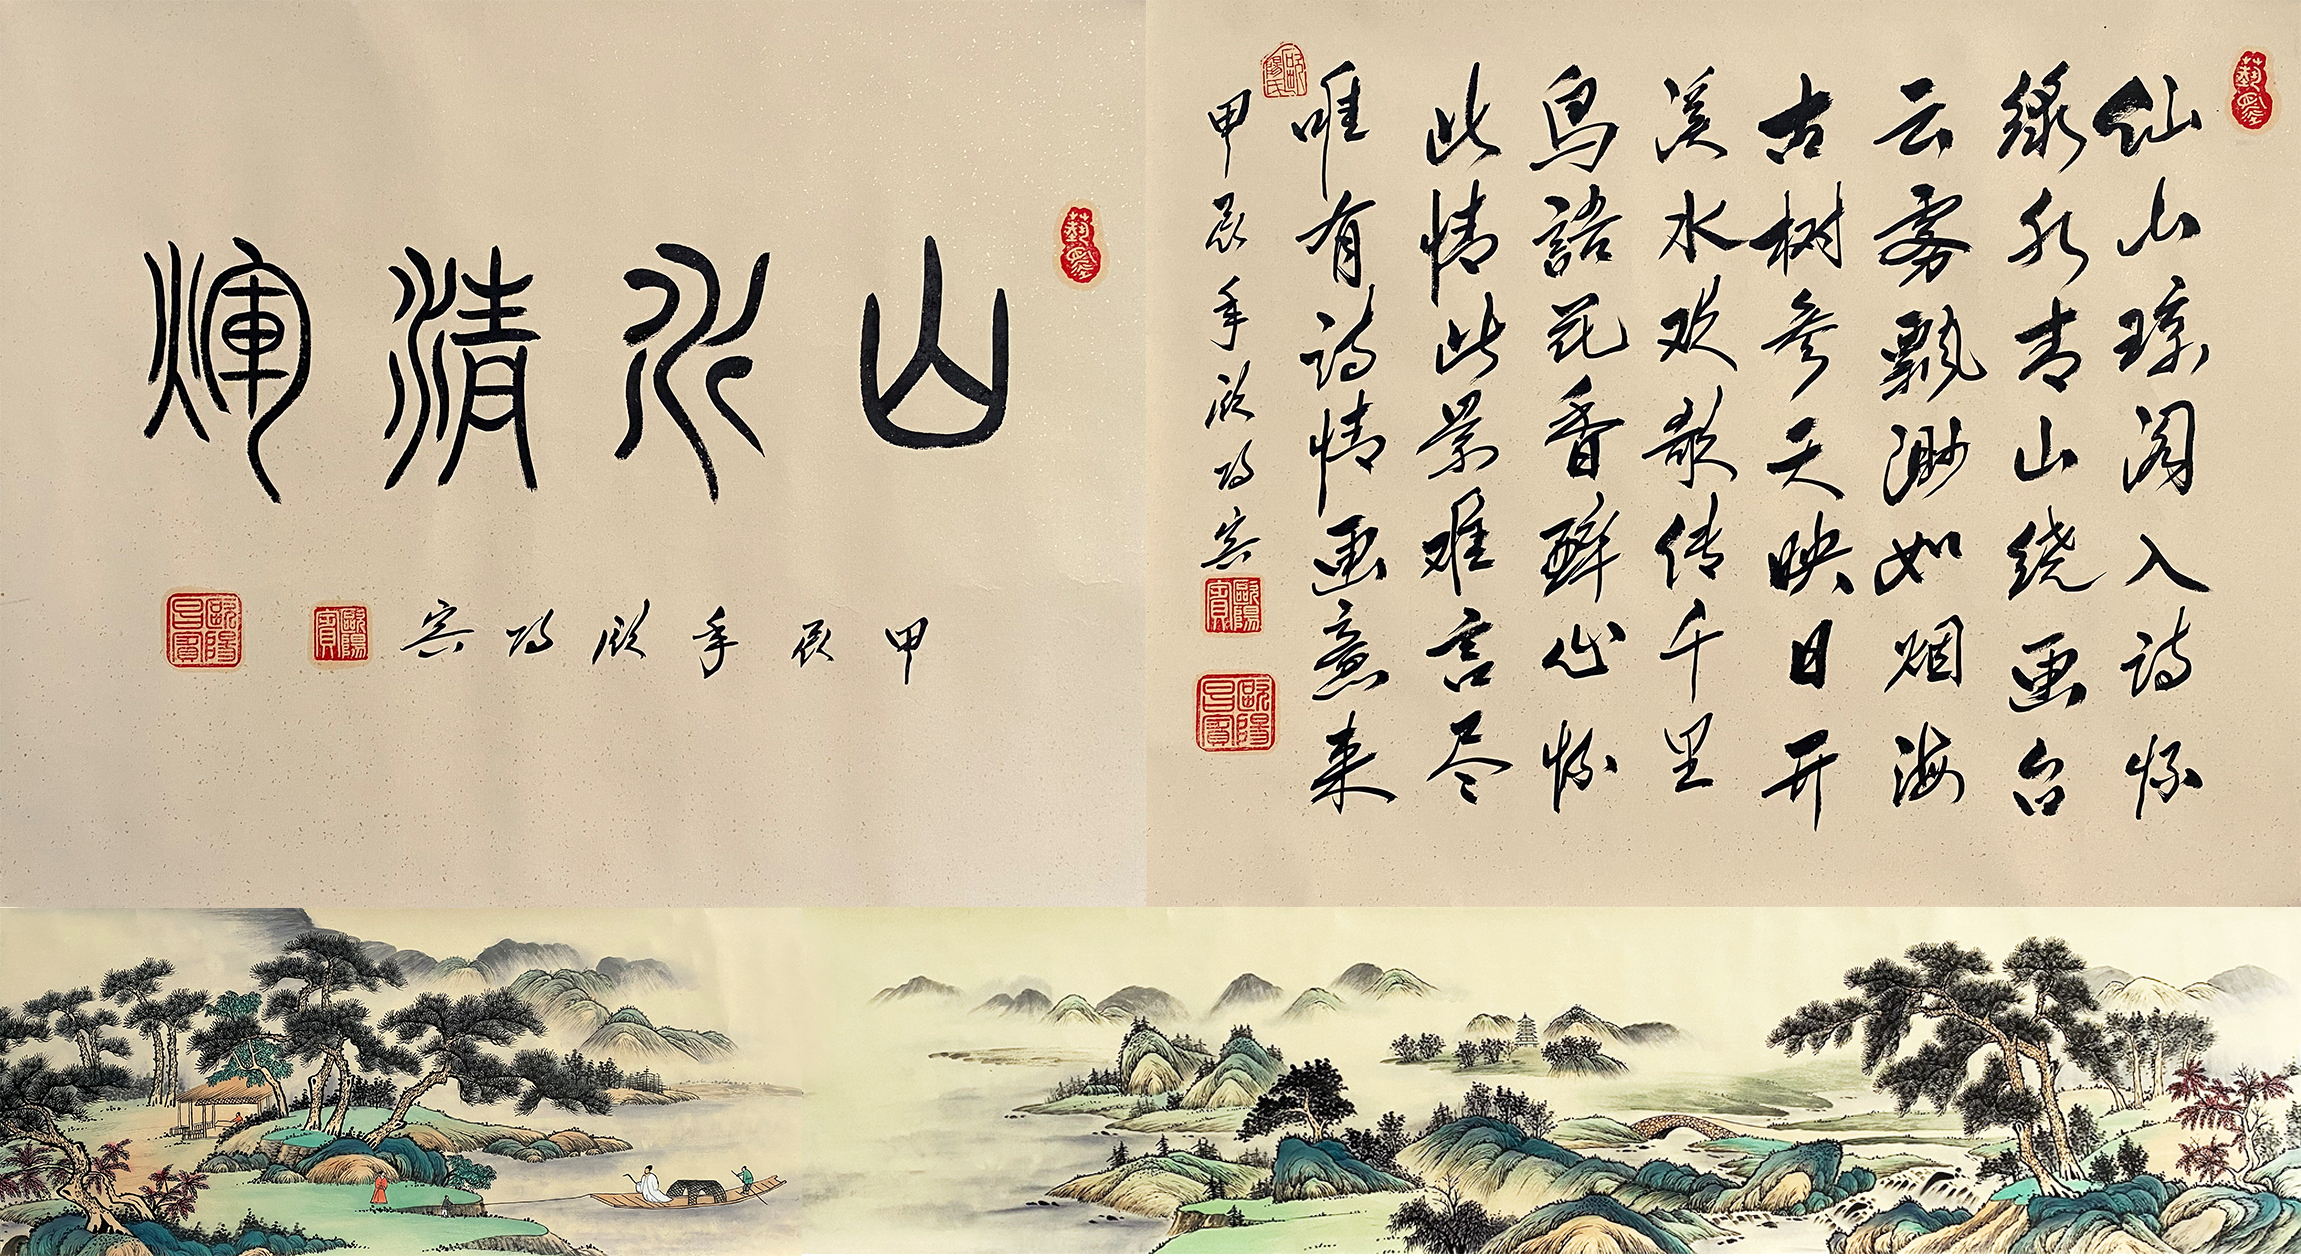 山水清煇
甲辰年欧阳宾
歐陽賓
仙山琼阁入诗怀
绿水青山绕画台
云雾飘渺如烟海
古树参天映日开
溪水欢歌传千里
鸟語花香醉心怀
此情此景难言尽
唯有诗情画意来
歐陽氏
甲辰年欧阳宾
歐陽賓